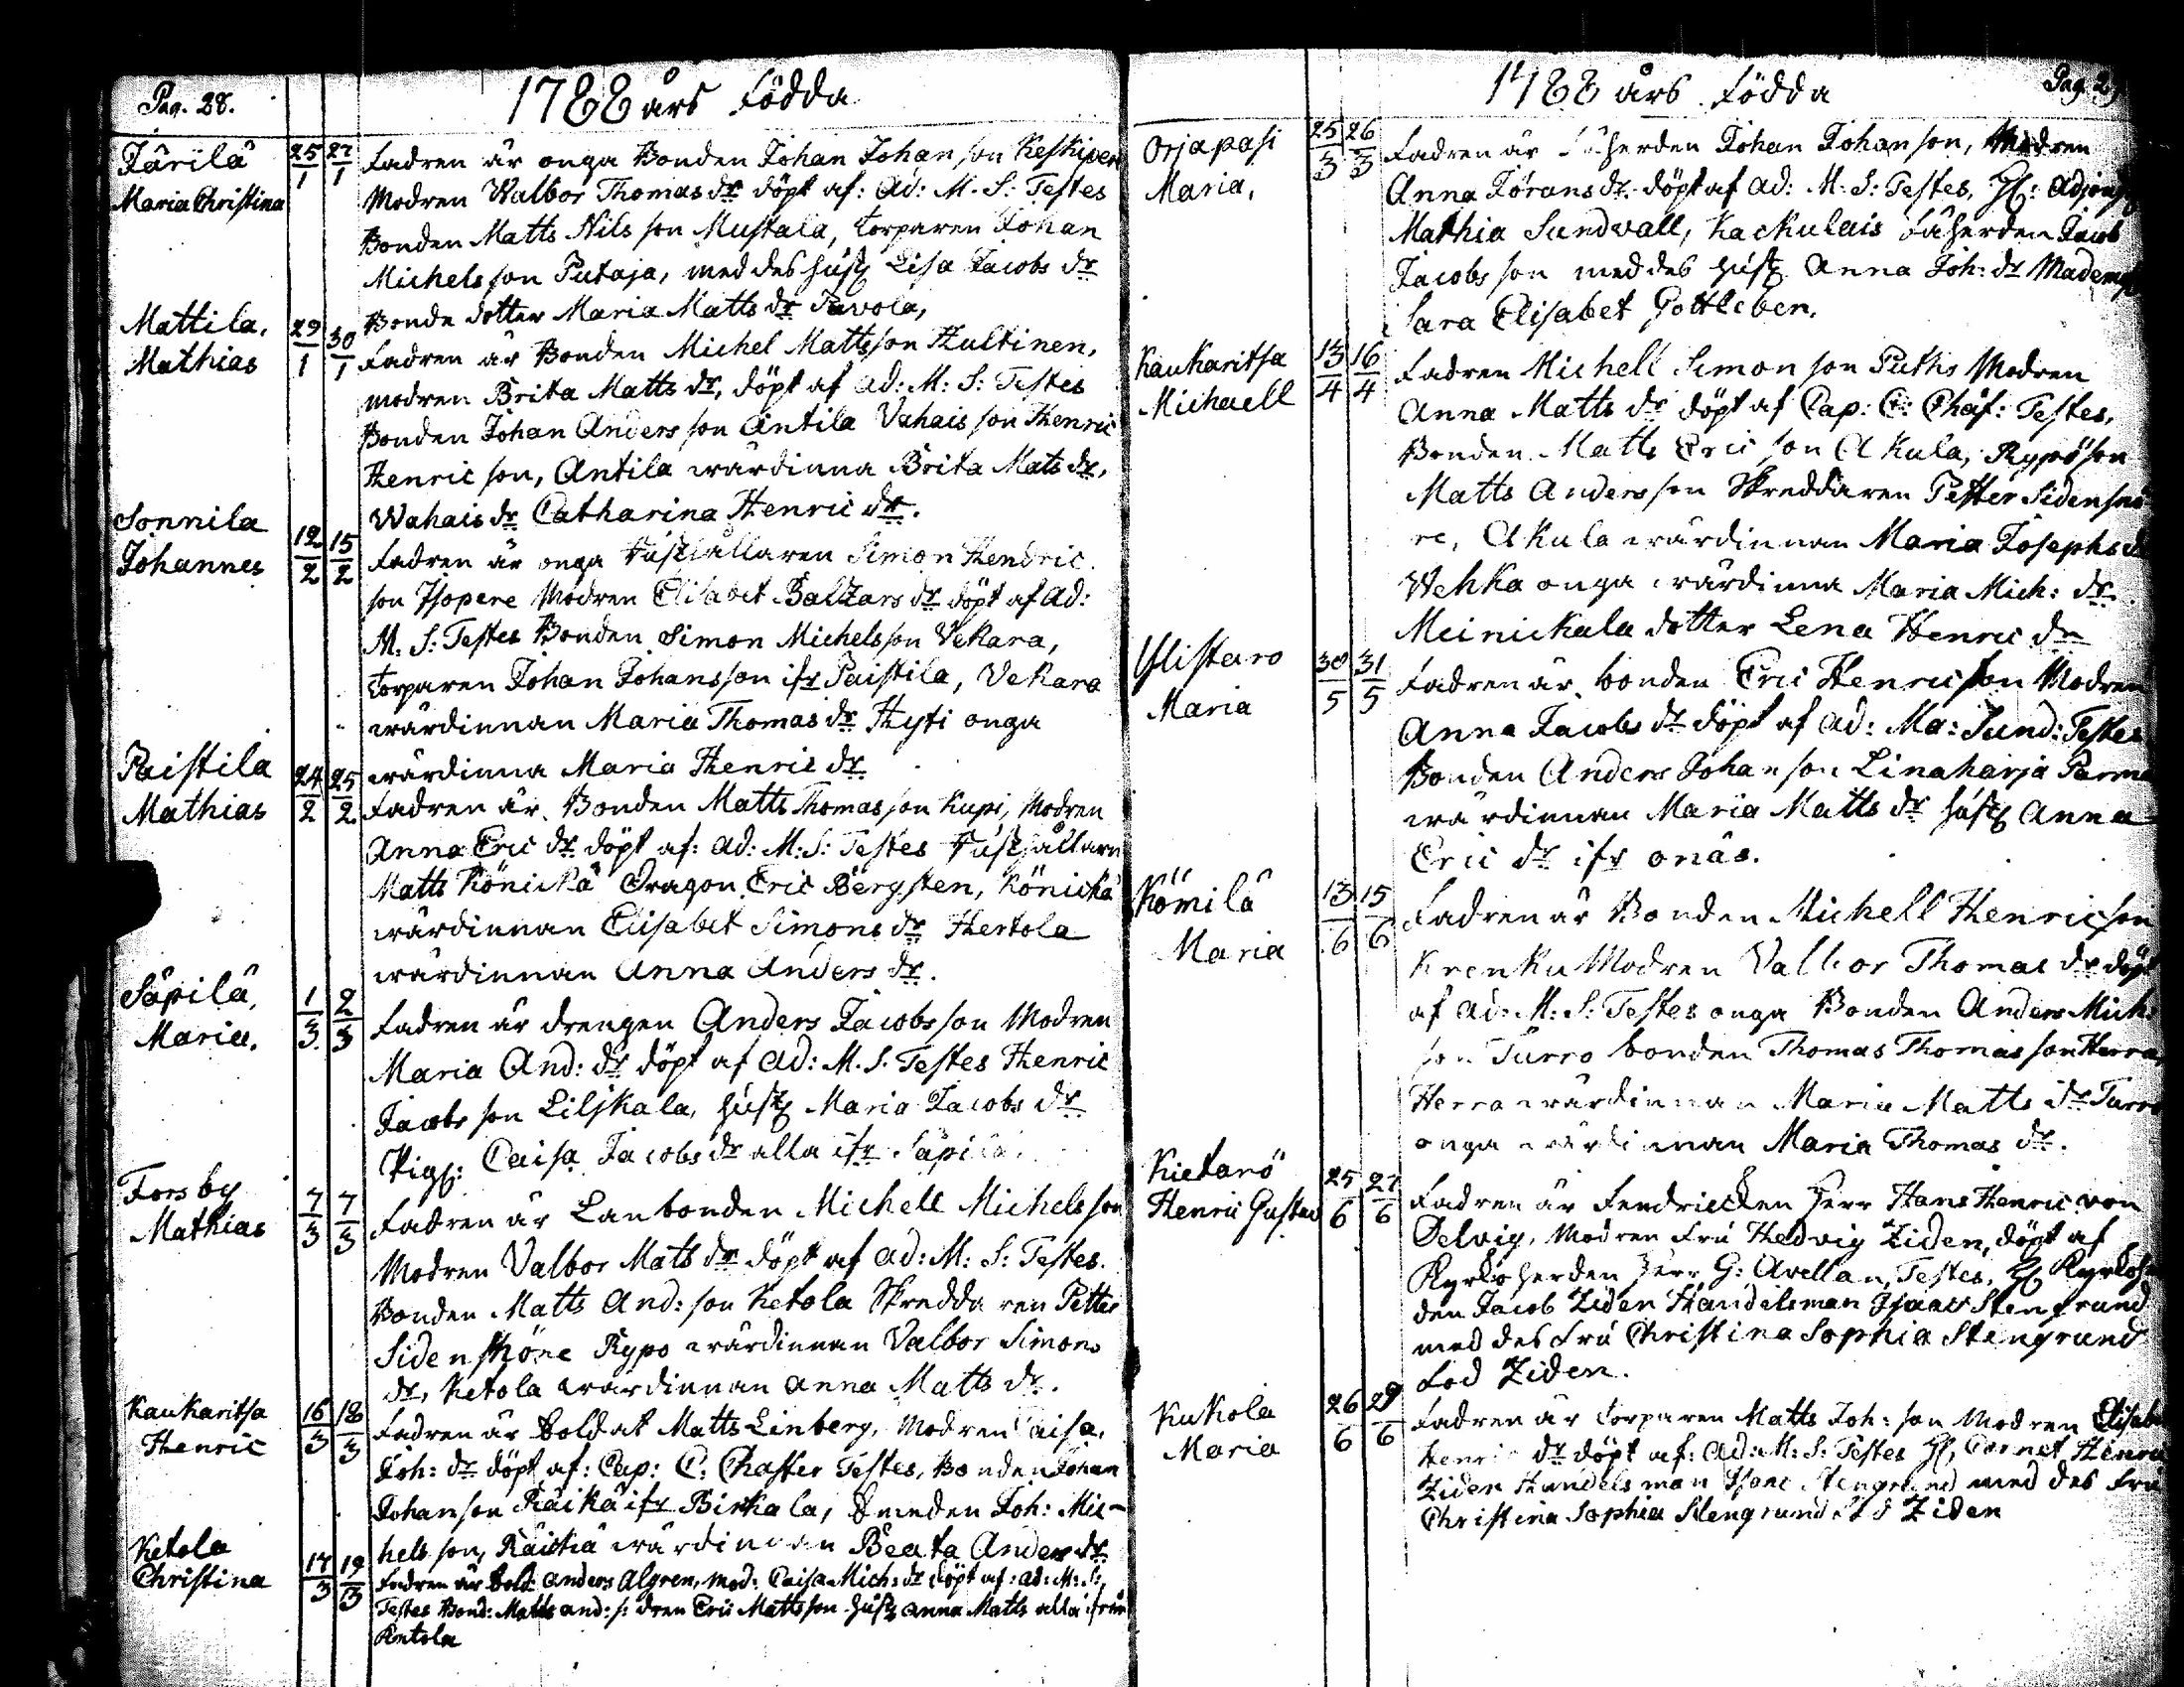 Pag. 28.
1788 års Födda
Järilä
Maria Christina
25/1 27/1
Fadren är onga Bonden Johan Johan son Keskipere
Modren Walbor Thomas dr döpt af: Ad: M. S: Testes
Bonden Matts Nils son Mustala, torparen Johan
Michels son Putaja, med des hust Lisa Jacobs dr
Bonde dotter Maria Matts dr Pavola,
Mattila,
Mathias
29/1 30/1
Fadren är Bonden Michel Matts son Hultinen,
modren Brita Matts dr, döpt af Ad: M: S: Testes
Bonden Johan Anders son Antila Vahais son Henric
Henric son, Antila wärdinna Brita Mats dr,
Wahais dr Catharina Henric dr.
Sonnila
Johannes
12/2 15/2
Fadren är onga Husthållaren Simon Hendric
son Isopere Modren Elisabet Baltzars dr döpt af Ad:
M. S: Testes Bonden Simon Michels son Vekara,
torparen Johan Johans son ifr Paistila, Vekara
wärdinnan Maria Thomas dr Hyti onga
wärdinna Maria Henric dr
Paistila
Mathias
24/2 25/2
Fadren är Bonden Matts Thomas son Kupi, Modren
Anna Eric dr döpt af: Ad: M: S: Testes Husthållarn
Matts Könickä Dragon Eric Bergsten, Könickä
wärdinnan Elisabet Simons dr Hertola
wärdinnan Anna Anders dr.
Säpilä,
Maria.
1/3 2/3
Fadren är drengen Anders Jacobs son Modren
Maria And: dr döpt af Ad: M. S. Testes Henric
Jacobs son Liljkala, hust Maria Jacobs dr
Pig: Caisa Jacobs dr alla ifr Säpilä.
Forsby
Mathias
7/3 7/3
Fadren är Lanbonden Michell Michels son
Modren Valbor Mats dr döpt af Ad: M: S: Testes.
Bonden Matts And: son Ketola Skreddaren Petter
Sidensköne Rypo wärdinnan Valbor Simons
dr, Ketola wärdinnan Anna Matts dr.
Kaukaritsa
Henric
16/3 18/3
Fadren är Soldat Matts Linberg, Modren Caisa
Joh: dr döpt af: Cap: C: Chaster Testes, Bonden Johan
Johan son Räikä ifr Birkala, Smeden Joh: Mic-
hels son, Räickä wärdinnan Beata Anders dr
Ketola
Christina
17/3 19/3
Fadren är Sold: Anders Algren, Mod: Caisa Mich: dr döpt af: Ad: M: S:
Testes Bond: Matts And: s: dren Eric Matts son hust Anna Matts alla ifrån
Ketola
1788 års Födda
Pag. 29
Orjapasi
Maria,
25/3 26/3
Fadren är Fäherden Johan Johan son, Modren
Anna Jörans dr. döpt af Ad: M: S: Testes,
Mathia Sundwall, Kackulais Fäherden Jacob
Jacobs son med des hust Anna Joh: dr
Sara Elisabet Gottleben.
Kaukaritsa
Michaell
13/4 16/4
Fadren Michell Simon son Puths Modren
Anna Matts dr döpt af Cap: C: Chaf: Testes,
Bonden Matts Eric son Akula, Rypö son
Matts Anders son Skreddaren Petter Sidensnö
re, Akula wärdinnan Maria Josephs dr
Wehka onga wärdinna Maria Mich: dr.
Meinickala dotter Lena Henric dr
Ylistaro
Maria
30/5 31/5
Fadren är bonden Eric Henric son Modren
Anna Jacobs dr döpt af Ad: Ma: Sund: Testes
Bonden Anders Johan son Linaharja
wärdinnan Maria Matts dr hust Anna
Eric dr ifr onäs.
Kömilä
Maria
13/6 15/6
Fadren är Bonden Michell Henric son
Krenku Modren Valbor Thomas dr döpt
af Ad: M: S: Testes onga Bonden Anders Mich:
son Turro bonden Thomas Thomas son Herra,
Herra wärdinnan Maria Matts dr Turro
onga wärdinnan Maria Thomas dr.
Kietarö
Henric Gustav
25/6 27/6
Fadren är Fendricken Herr Hans Henric von
Delvig, Modren Fru Hedvig Ziden, döpt af
Kyrkoherden Herr G: Avellan, Testes,
den Jacob Ziden Handelsman Isaac Stengrund
med des Fru Christina Sophia Stengrund
Föd Ziden.
Kukola
Maria
26/6 29/6
Fadren är torparen Matts Joh: son Modren Elisabet
Henric dr döpt af: Ad: M: S: Testes Cornet Henric
Ziden Handelsman Isaac Stengrund med des Fru
Christina Sophia Stengrund Föd Ziden